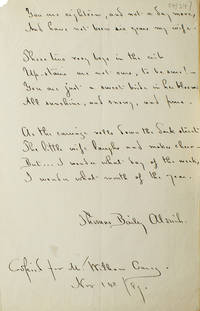 You are eighteen, and not a day more,
And have not been six years my wife.
Those two very boys in the crib
Up-stairs are not ours, to be sure!—
You are just a sweet bride in her bloom,
All sunshine, and snowy, and pure.
As the carriage rolls down the dark street
The little wife laughs and makes cheer—
But... I wonder what day of the week,
I wonder what month of the year.
Thomas Bailey Aldrich.
Copied for Mr William Carey
Nov